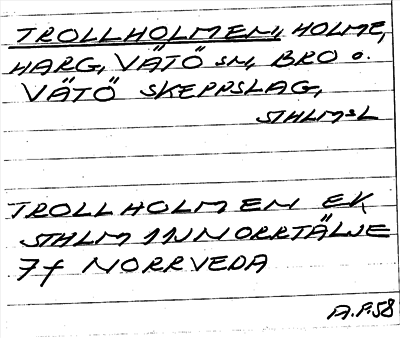 TROLLHOLMEN, HOLME,
HARG, VÄTÖ SN, BRO O.
VÄTÖ SKEPPSLAG,
STHLMSL
TROLLHOLMEN EK
STHLM 11J NORRTÄLJE
7f NORRVEDA
A.P.58